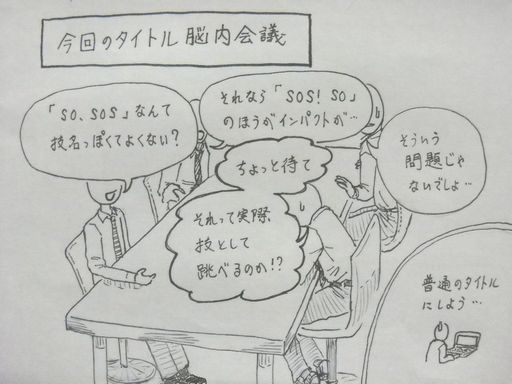 今回のタイトル脳内会議
「SO、SOS」なんて
技名っぽくてよくない？
それなら「SOS！SO」
のほうがインパクトが…
ちょっと待て
それって実際
技として
跳べるのか!?
そういう
問題じゃ
ないでしょ…
普通のタイトル
にしよう…